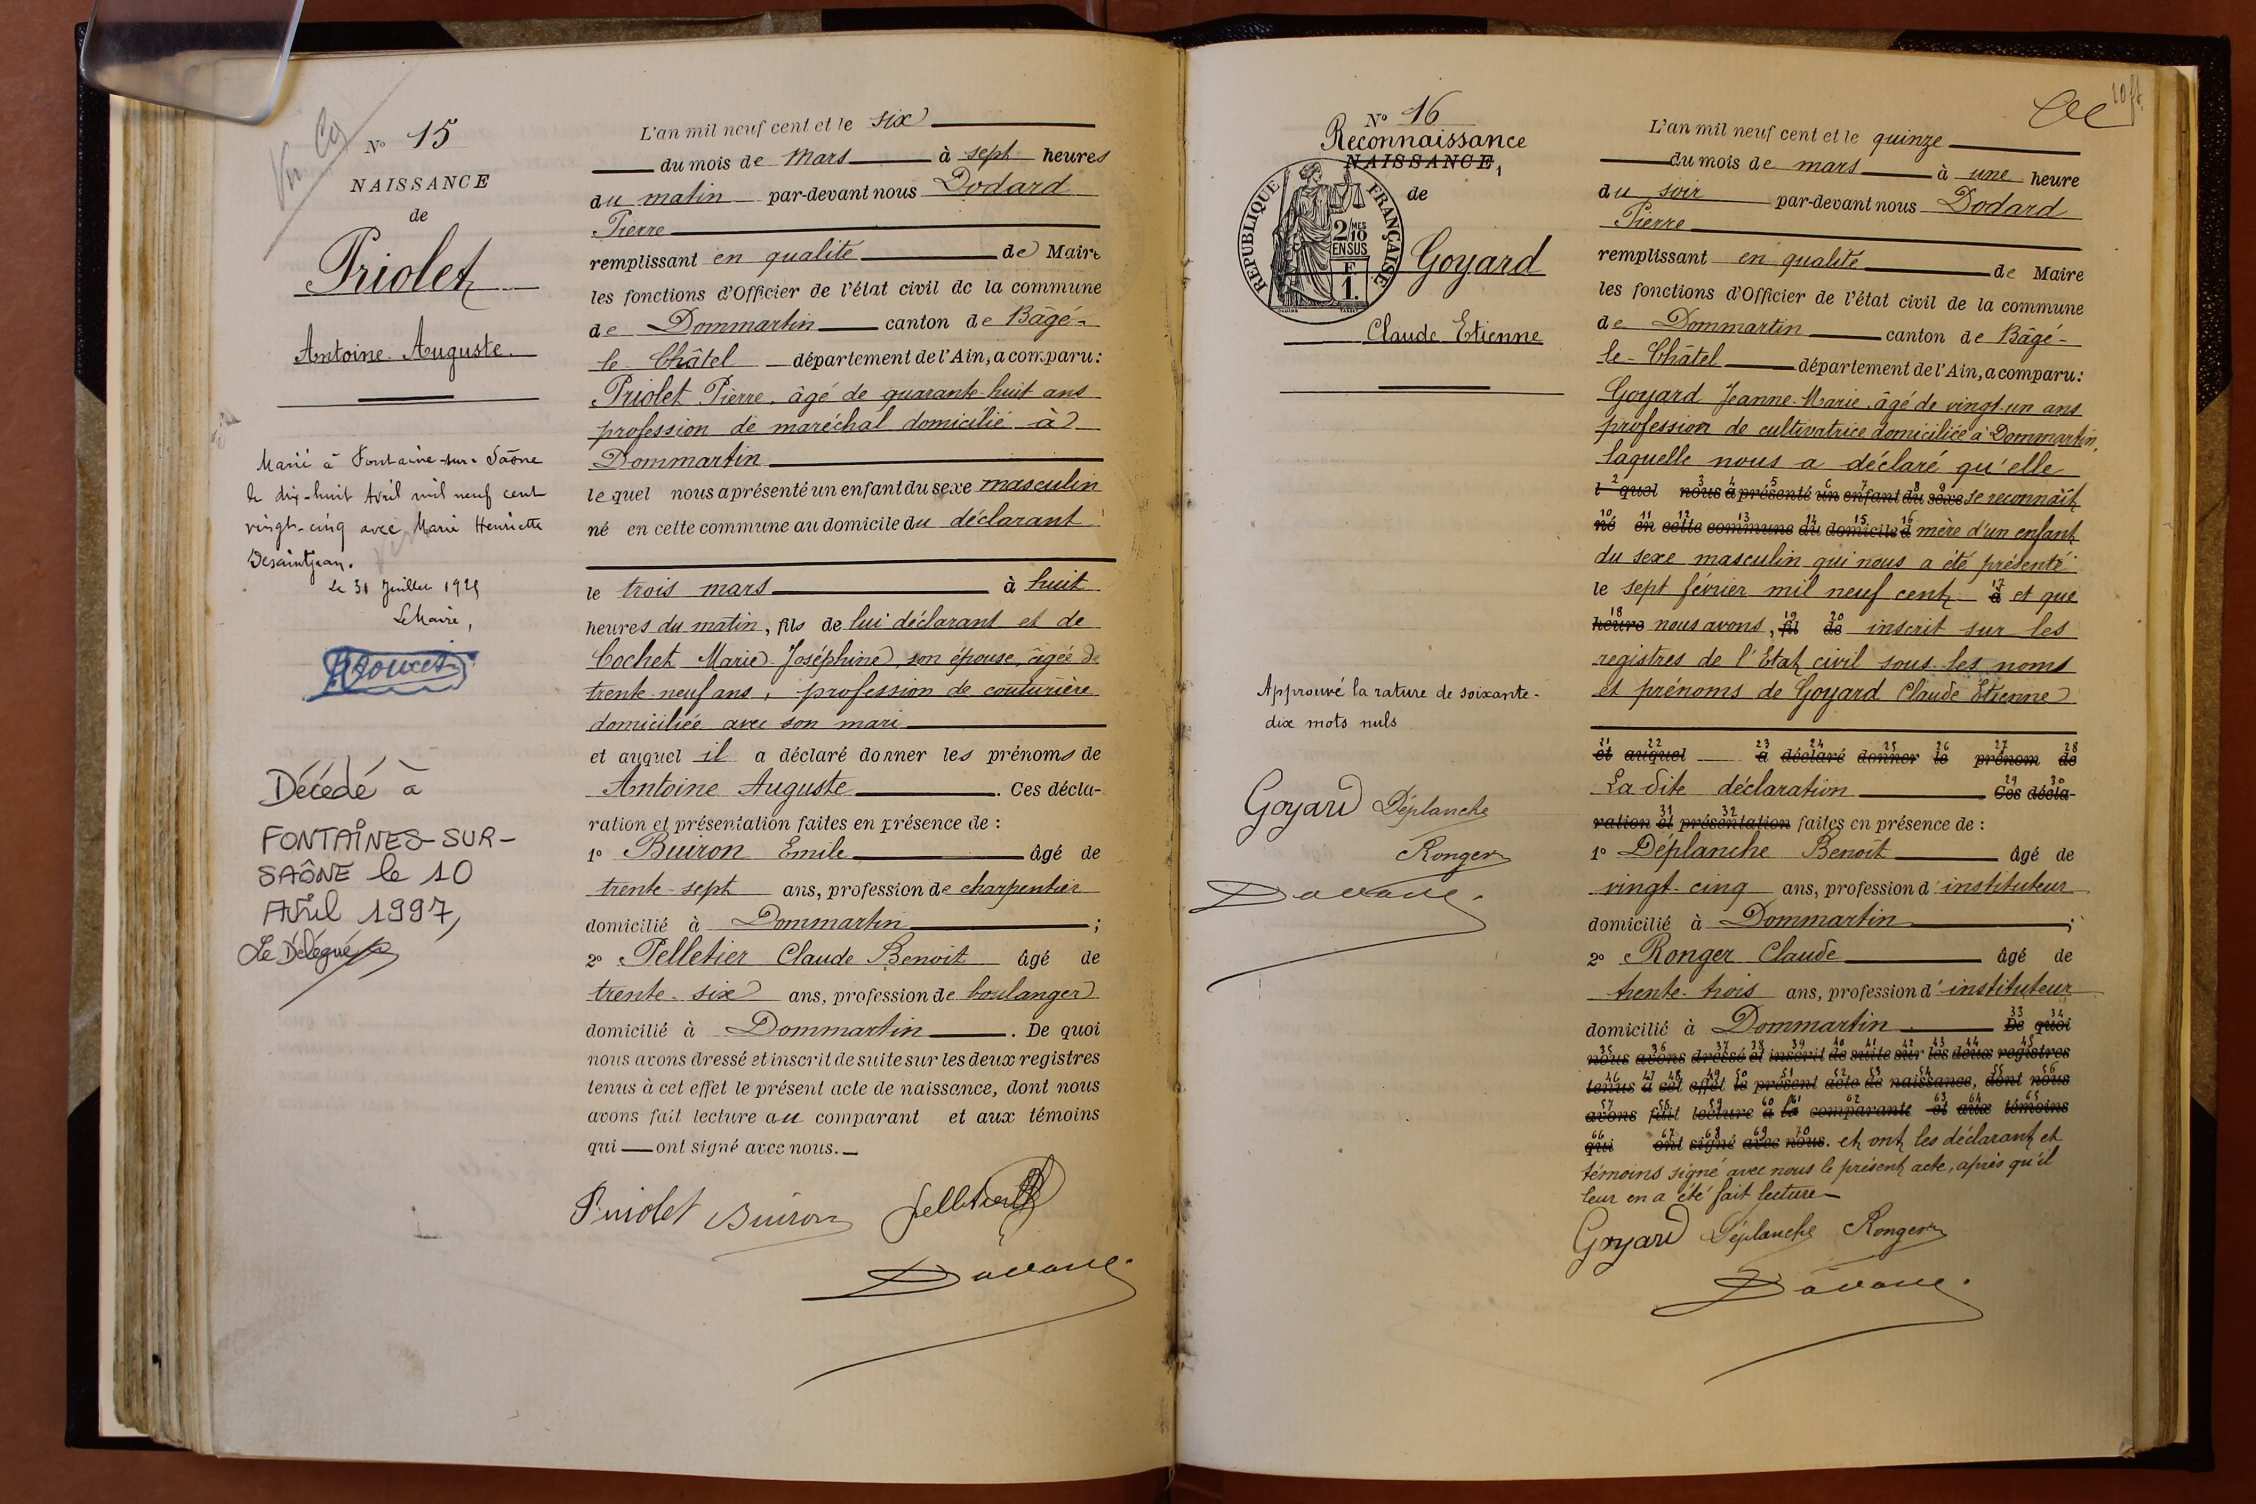 Vu Cg
N° 15
NAISSANCE
de
Priolet
Antoine Auguste
Marié à Fontaine-sur-Saône
le dix-huit Avril mil neuf cent
vingt-cinq avec Marie Henriette
Desaintjean.
Le 31 Juillet 1925
Le Maire,
Décédé à
FONTAINES-SUR-
SAÔNE le 10
Avril 1997,
Le Délégué
L'an mil neuf cent et le six
du mois de Mars à sept heures
du matin par-devant nous Dodard
Pierre
remplissant en qualité de Maire
les fonctions d'Officier de l'état civil de la commune
de Dommartin canton de Bâgé-
le-Châtel département de l'Ain, a comparu:
Priolet Pierre, âgé de quarante-huit ans
profession de maréchal domicilié à
Dommartin
lequel nous a présenté un enfant du sexe masculin
né en cette commune au domicile du déclarant
le trois mars à huit
heures du matin, fils de lui déclarant et de
Cochet Marie Joséphine son épouse, âgée de
trente-neuf ans, profession de couturière
domiciliée avec son mari
et auquel il a déclaré donner les prénoms de
Antoine Auguste. Ces décla-
ration et présentation faites en présence de :
1° Buiron Emile âgé de
trente-sept ans, profession de charpentier
domicilié à Dommartin ;
2° Pelletier Claude Benoit âgé de
trente-six ans, profession de boulanger
domicilié à Dommartin. De quoi
nous avons dressé et inscrit de suite sur les deux registres
tenus à cet effet le présent acte de naissance, dont nous
avons fait lecture au comparant et aux témoins
qui ont signé avec nous.
Priolet Buiron Pelletier
Dodard
N° 16
Reconnaissance
NAISSANCE,
de
REPUBLIQUE FRANÇAISE
2/MES 10
EN SUS
F
1.
Goyard
Claude Etienne
Approuvé la rature de soixante-
dix mots nuls
Goyard Déplanche
Ronger
Dodard
L'an mil neuf cent et le quinze
du mois de mars à une heure
du soir par-devant nous Dodard
Pierre
remplissant en qualité de Maire
les fonctions d'Officier de l'état civil de la commune
de Dommartin canton de Bâgé-
le-Châtel département de l'Ain, a comparu:
Goyard Jeanne-Marie, âgé de vingt-un ans
profession de cultivatrice domiciliée à Dommartin,
laquelle nous a déclaré qu'elle
2 3 4 5 6 7 8 9
l quel nous a présenté un enfant du sexe se reconnaît
10 11 12 13 14 15 16
né en cette commune du domicile d mère d'un enfant
du sexe masculin qui nous a été présenté
17
le sept février mil neuf cent à et que
18 19 20
heure nous avons, fil de inscrit sur les
registres de l'Etat civil sous les noms
et prénoms de Goyard Claude Etienne
21 22 23 24 25 26 27 28
et auquel a déclaré donner le prénom de
29 30
La dite déclaration Ces décla-
31 32
ration et présentation faites en présence de :
1° Déplanche Benoit âgé de
vingt-cinq ans, profession d'instituteur
domicilié à Dommartin ;
2° Ronger Claude âgé de
trente-trois ans, profession d'instituteur
33 34
domicilié à Dommartin De quoi
35 36 37 38 39 40 41 42 43 44 45
nous avons dressé et inscrit de suite sur les deux registres
46 47 48 49 50 51 52 53 54 55 56
tenus à cet effet le présent acte de naissance, dont nous
57 58 59 60 61 62 63 64 65
avons fait lecture à la comparante et aux témoins
66 67 68 69 70
qui ont signé avec nous. et ont les déclarant et
témoins signé avec nous le présent acte, après qu'il
leur en a été fait lecture
Goyard Déplanche Ronger
Dodard